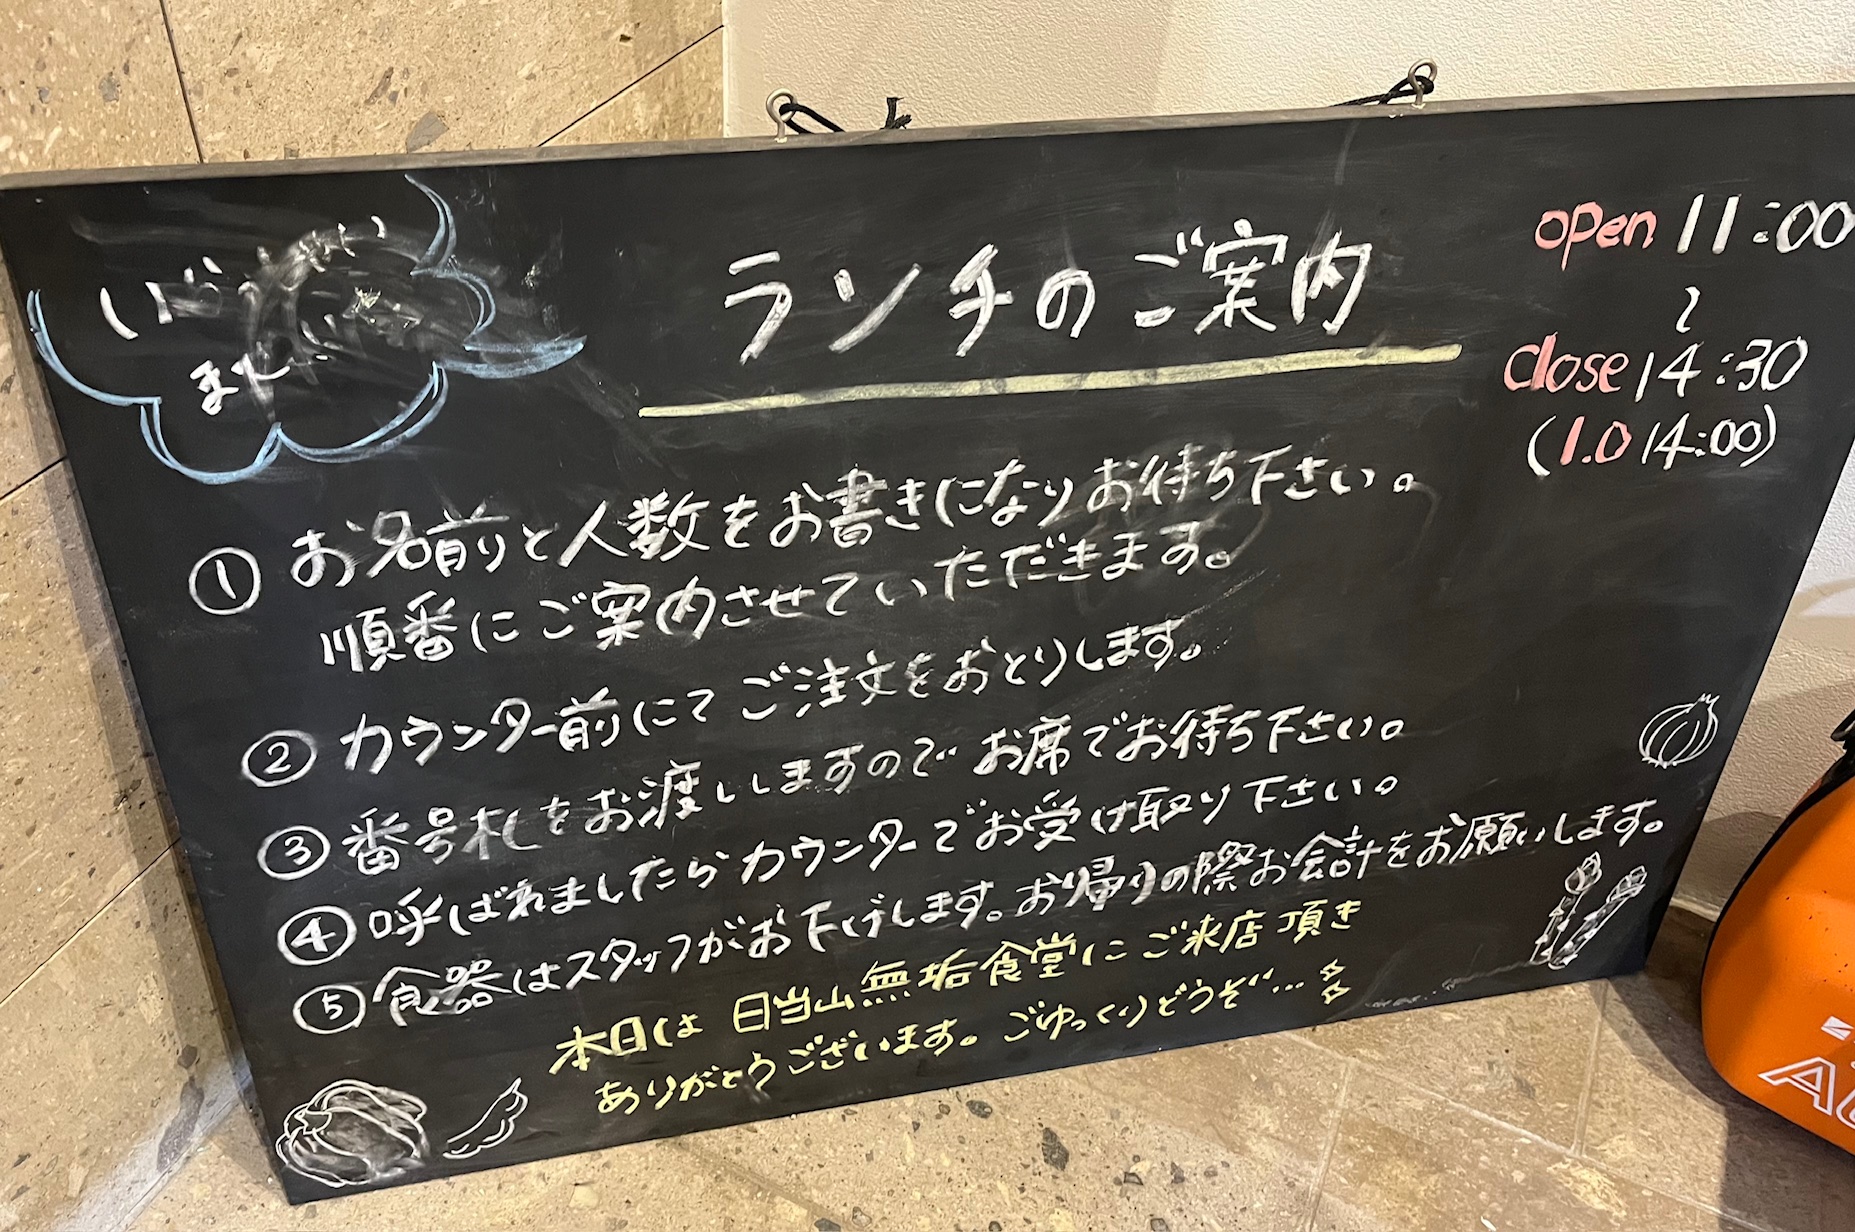 いらっ
ませ
ランチのご案内
open 11:00
〜
close 14:30
(l.o 14:00)
① お名前と人数をお書きになりお待ち下さい。
順番にご案内させていただきます。
② カウンター前にて ご注文をおとりします。
③ 番号札をお渡ししますので お席でお待ち下さい。
④ 呼ばれましたらカウンターでお受け取り下さい。
⑤ 食器はスタッフがお下げします。お帰りの際お会計をお願いします。
本日は 日当山無垢食堂にご来店 頂き
ありがとうございます。ごゆっくりどうぞ…